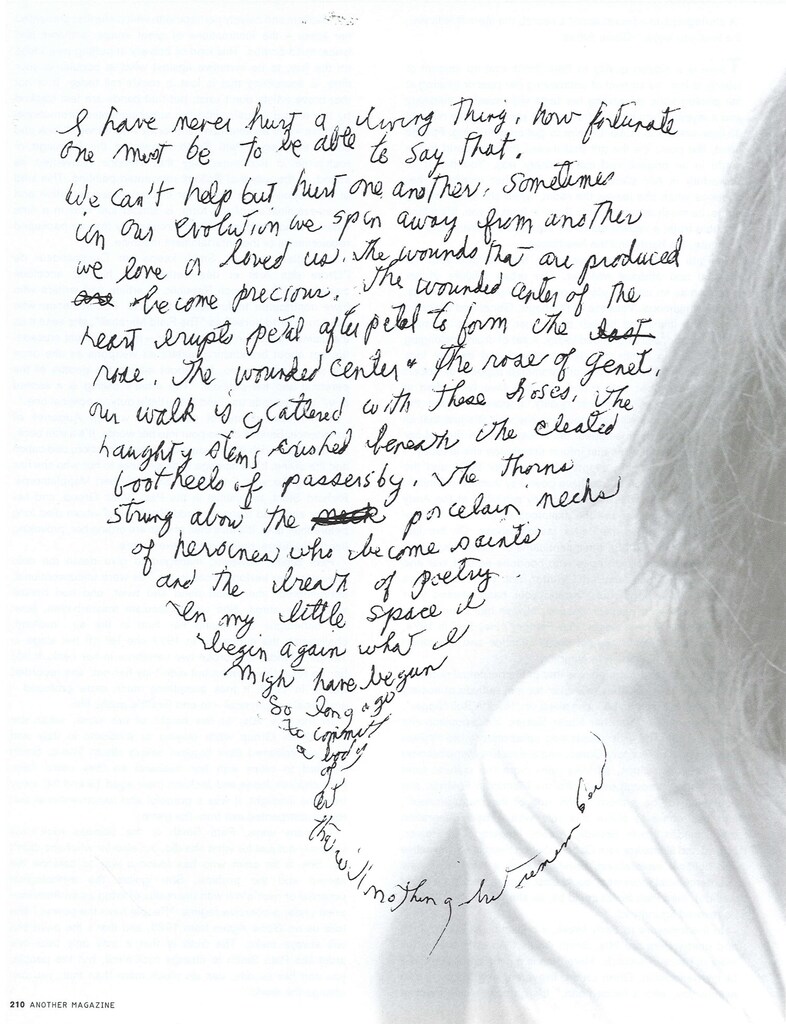 I have never hurt a living thing. how fortunate
one must be to be able to say that.
We can't help but hurt one another. sometimes
in our evolution we spin away from another
we love or loved us. The wounds that are produced
become precious. The wounded center of the
heart erupts petal after petal to form the
rose. The wounded center the rose of Genet.
our walk is scattered with these roses. The
haughty stems crushed beneath the cleated
boot heels of passersby. The thorns
strung about the porcelain necks
of heroines who become saints
and the breath of poetry.
In my little space I
begin again what I
might have begun
So long ago
to commit
a body
of
art
that will nothing but remember
210 ANOTHER MAGAZINE